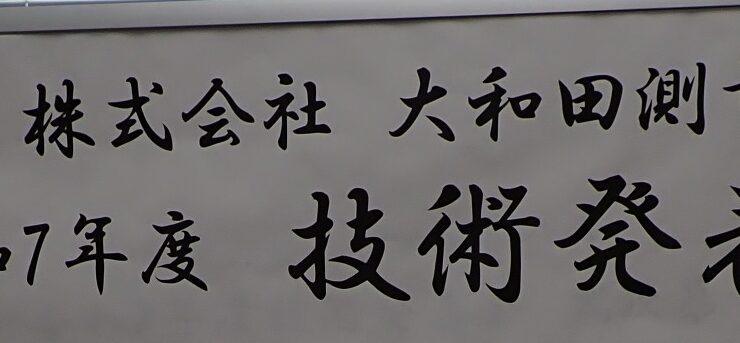 株式会社 大和田測
7年度 技術発